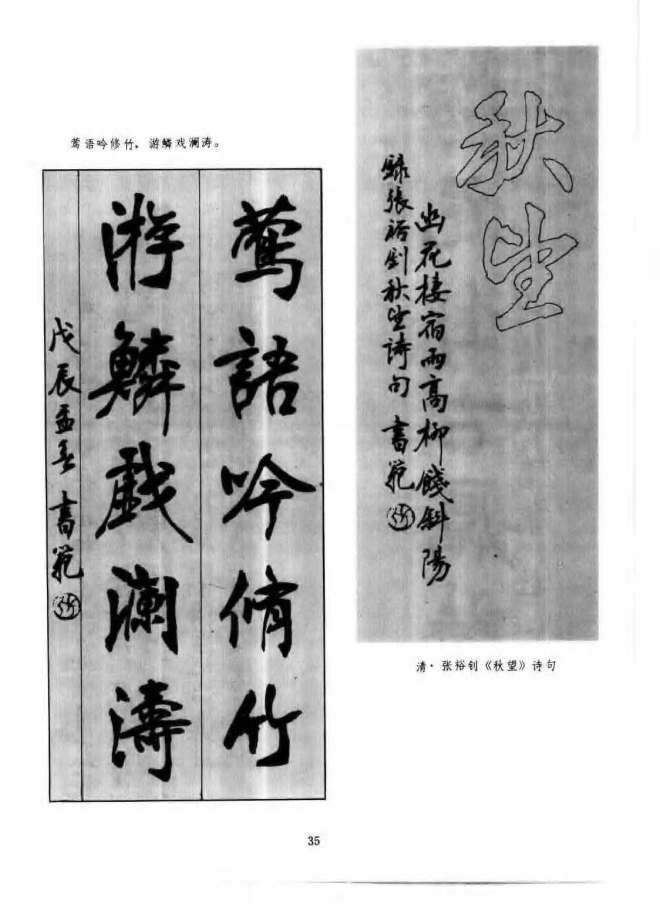 莺语吟修竹，游鳞戏澜涛。
莺語吟脩竹
游鱗戲瀾濤
戊辰孟春 書範
秋望
幽花棲宿雨高柳餞斜陽
錄張裕釗秋望詩句 書範
清·张裕钊《秋望》诗句
35